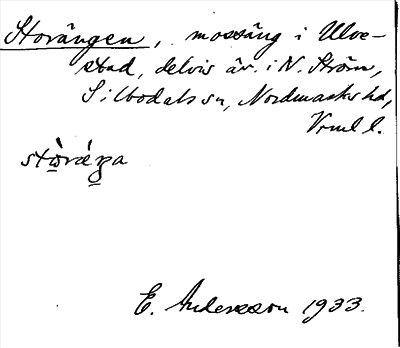 Storängen, mossäng i Ulve-
stad, delvis äv. i N. Ström,
Silbodals sn, Nordmarks hd,
Vrml l.
stò̱rǽŋa
E. Andersson 1933.